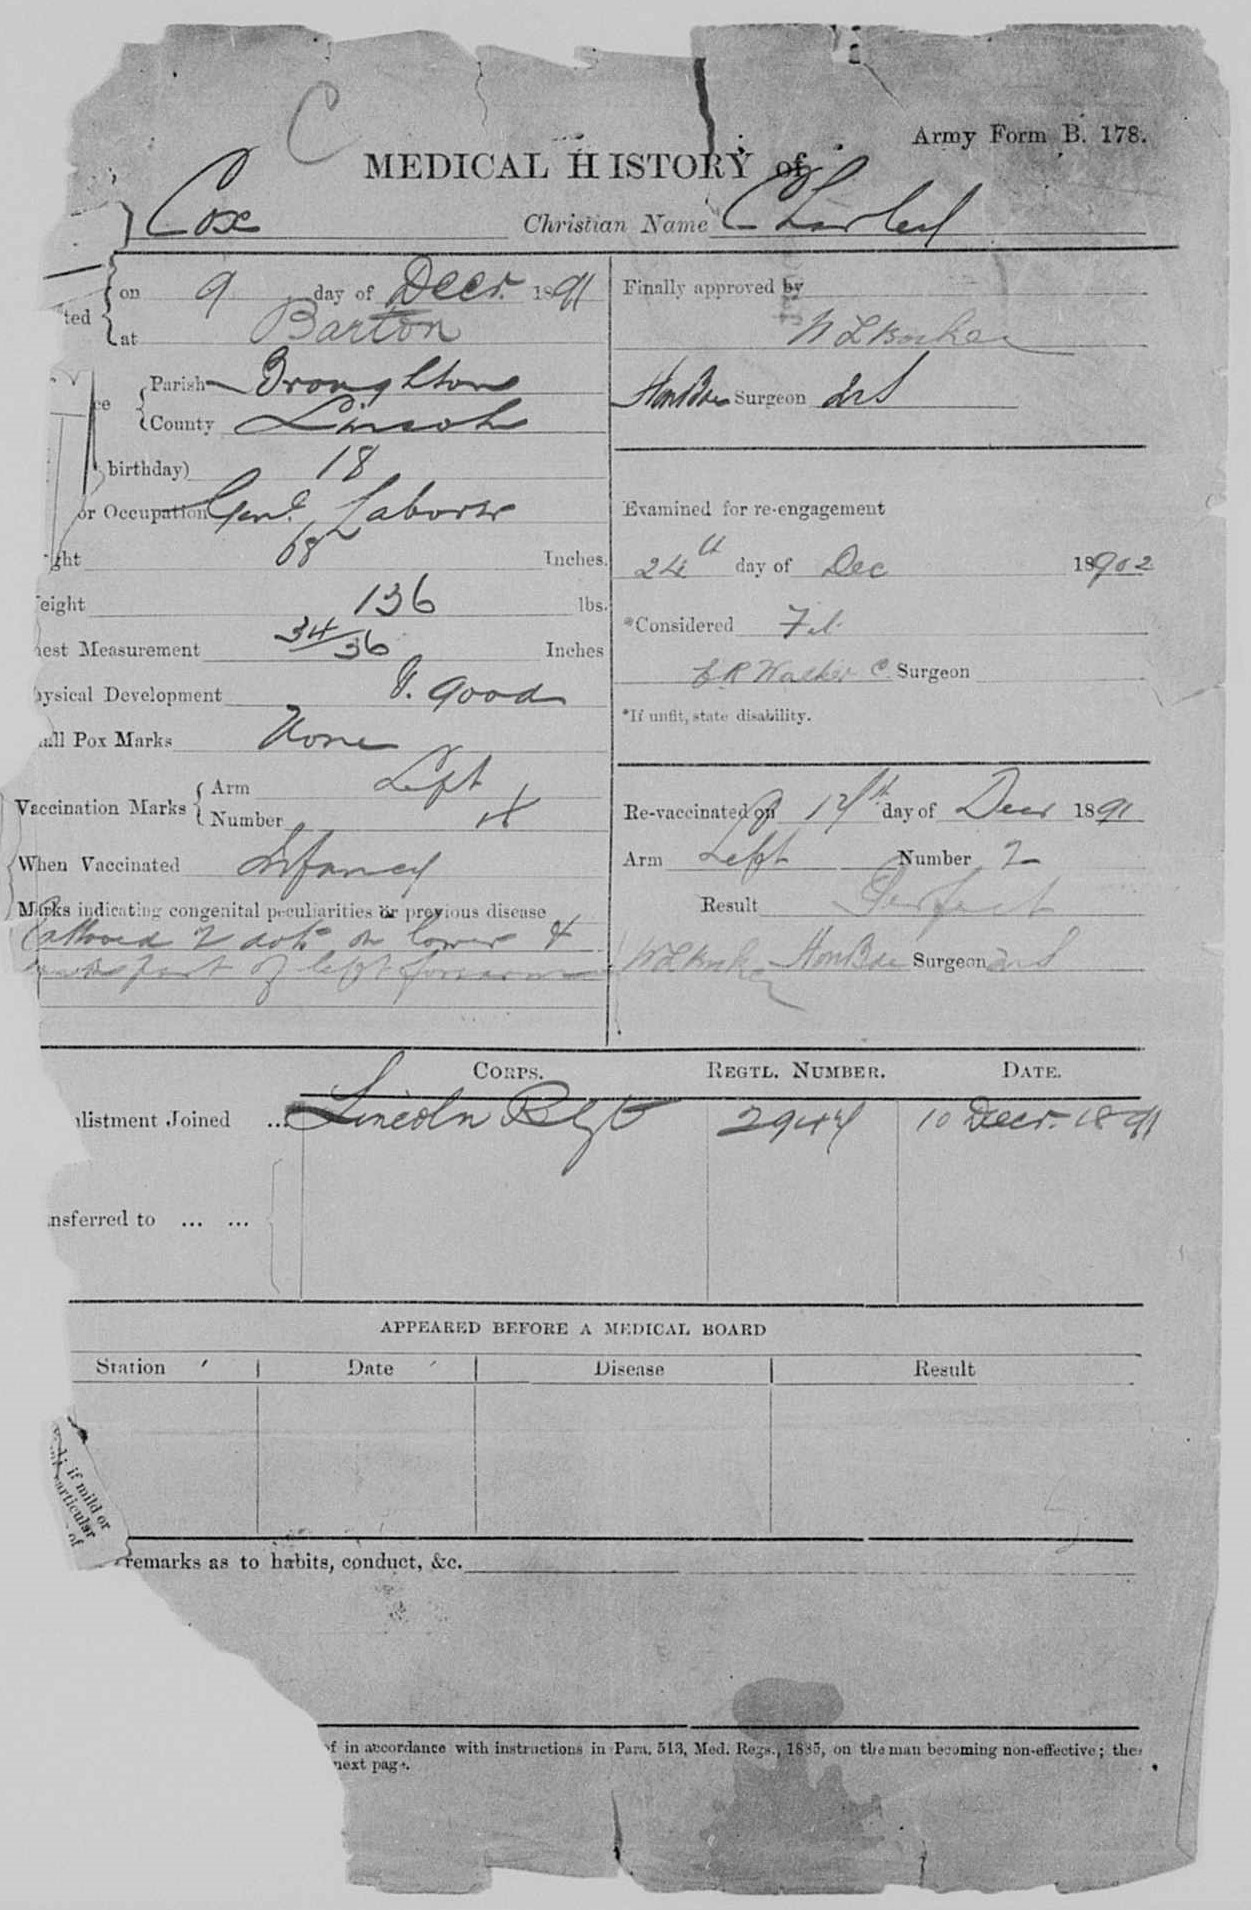 C
Army Form B. 178.
MEDICAL HISTORY of
Cox Christian Name Charles
on 9 day of Decr. 1891
ted
at Barton
Parish Broughton
ce
County Lincoln
birthday) 18
or Occupation Genl. Laborer
ght 68 Inches.
eight 136 lbs.
hest Measurement 34/36 Inches
hysical Development good
all Pox Marks None
Vaccination Marks Arm Left
Number 4
When Vaccinated Infancy
Marks indicating congenital peculiarities or previous disease
Tattooed 2 dots on lower &
part of left forearm
Finally approved by
Surgeon
Examined for re-engagement
24th day of Dec 18902
*Considered Fit
E R Walker C. Surgeon
*If unfit, state disability.
Re-vaccinated on 14th day of Decr 1891
Arm Left Number 2
Result Perfect
Surgeon
CORPS. REGTL. NUMBER. DATE.
nlistment Joined ... Lincoln Regt 2944 10 Decr. 1891
nsferred to ... ...
APPEARED BEFORE A MEDICAL BOARD
Station Date Disease Result
if mild or
articular
of
remarks as to habits, conduct, &c.
of in accordance with instructions in Para. 513, Med. Regs., 1885, on the man becoming non-effective; the
next page.